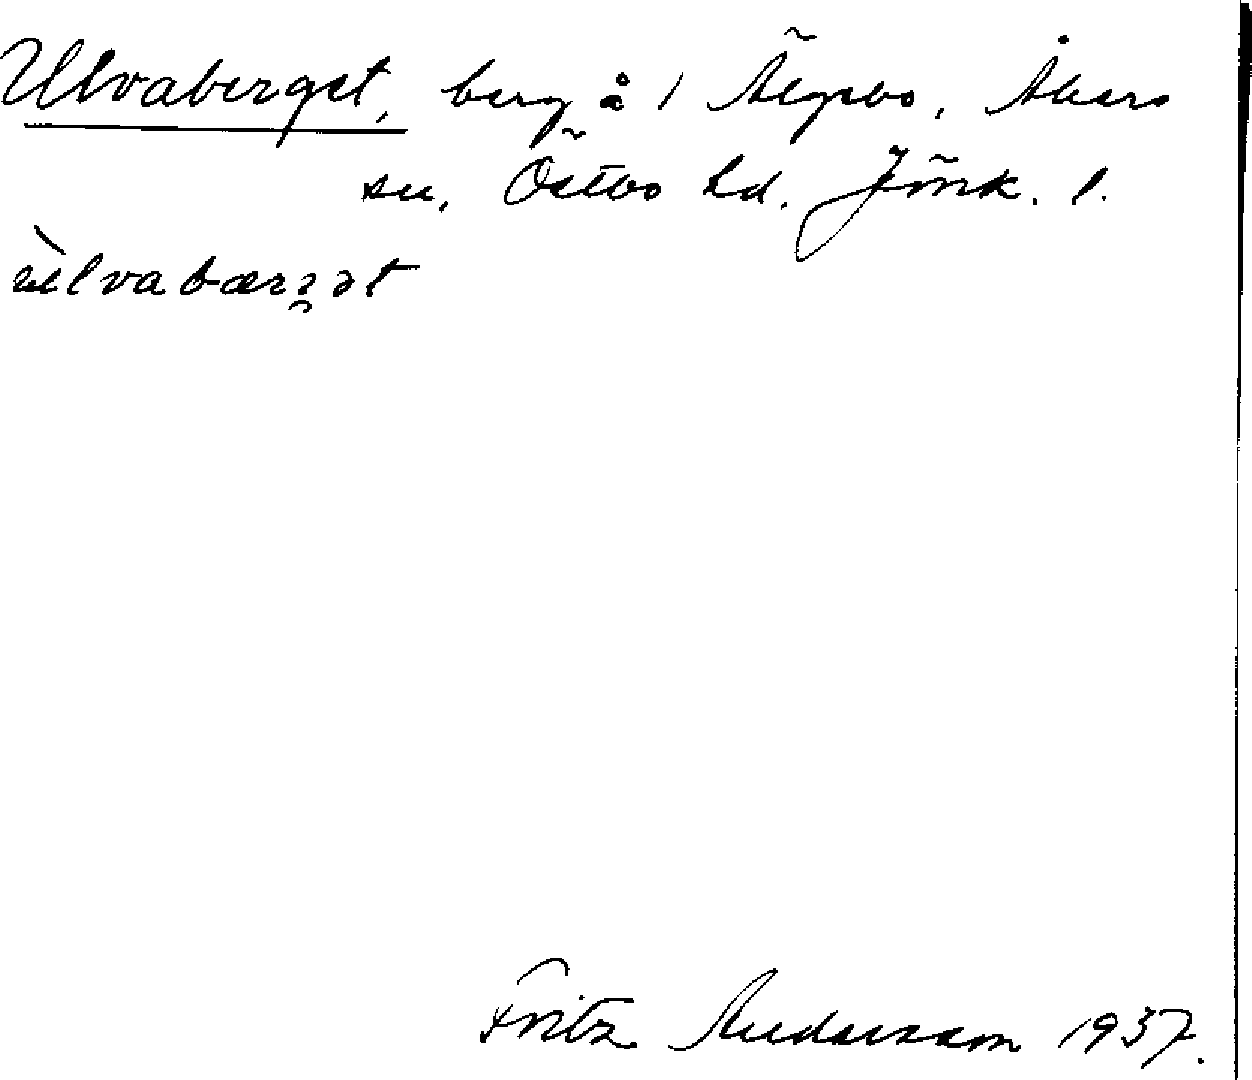 Ulvaberget, berg å 1 Älgebo, Åkers
sn, Östbo hd. Jönk. l.
ùlvabærgət
Fritz Andersson 1937.